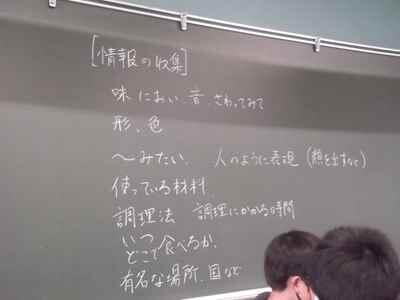 [情報の収集]
味 におい、音、さわってみて
形、色
〜みたい、 人のように表現 (顔を出すなど)
使っている材料
調理法 調理にかかる時間
いつ
どこで食べるか、
有名な場所、国など